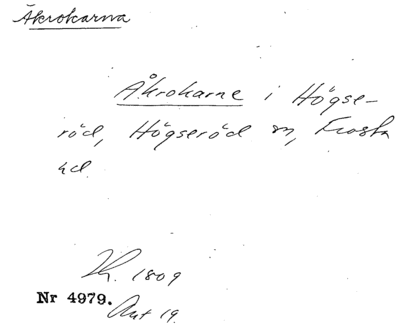 Åkrokarna
Åkrokarne i Högse-
röd, Högseröd sn, Frosta
hd.
1809
Nr 4979.
Akt 19.